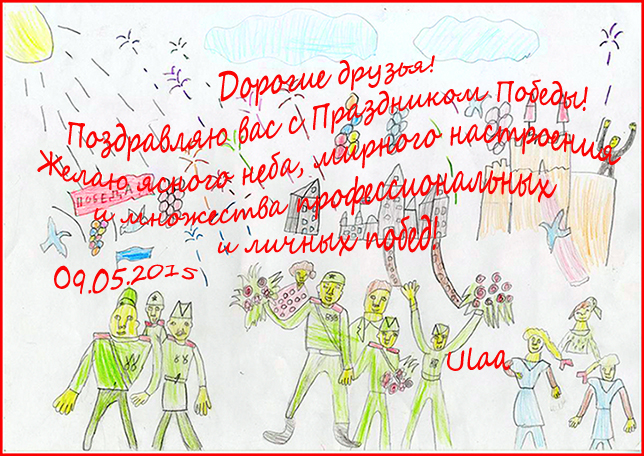 Дорогие друзья!
Поздравляю вас с Праздником Победы!
Желаю ясного неба, мирного настроения
и множества профессиональных
и личных побед!
ПОБЕДА
09.05.2015
Ulaa